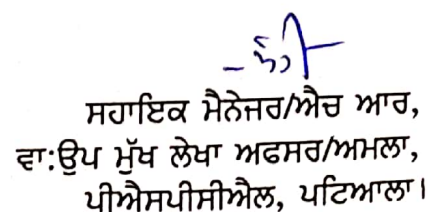 ਸਹਾਇਕ ਮੈਨੇਜਰ/ਐਚ ਆਰ,
ਵਾ:ਉਪ ਮੁੱਖ ਲੇਖਾ ਅਫਸਰ/ਅਮਲਾ,
ਪੀਐਸਪੀਸੀਐਲ, ਪਟਿਆਲਾ।